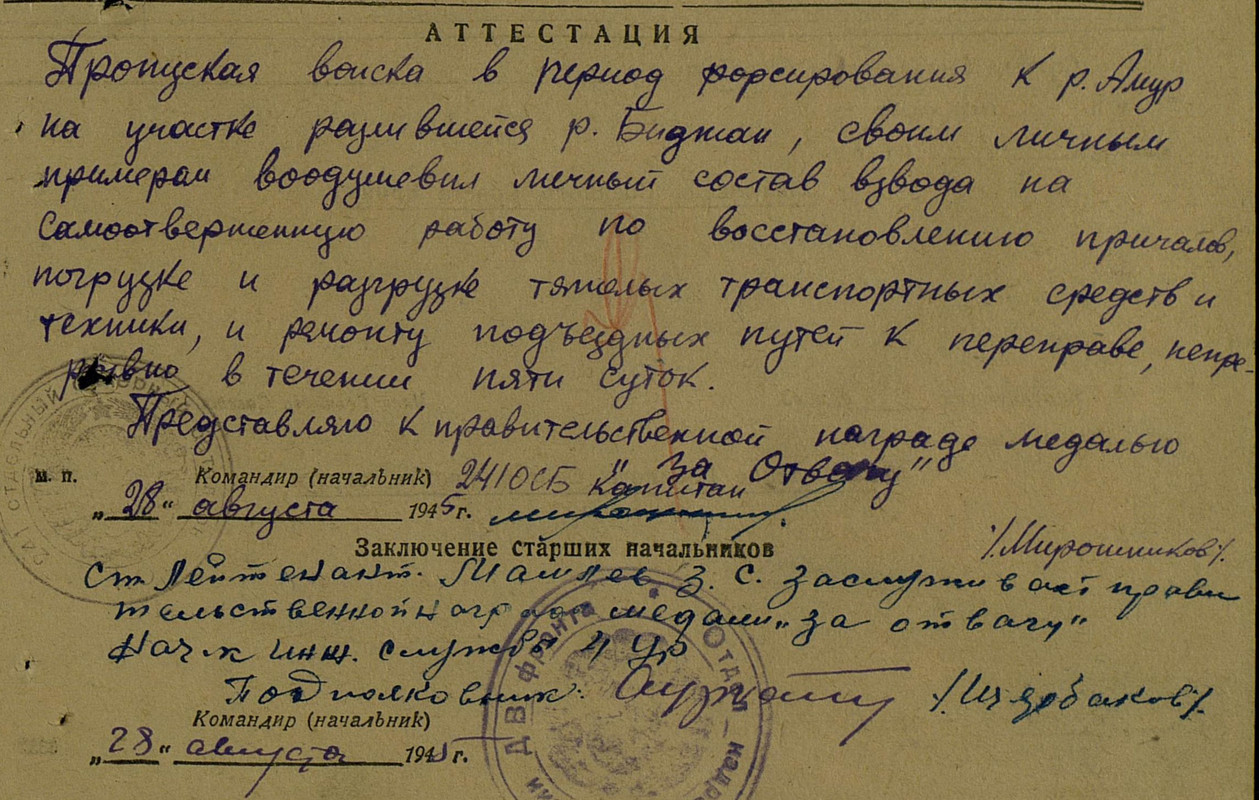 АТТЕСТАЦИЯ
Пропуская воиска в период форсирования к р. Амур
на участке разлившейся р. Биджан, своим личным
примером воодушевил личный состав взвода на
самоотверженную работу по восстановлению причалов,
погрузке и разгрузке тяжелых транспортных средств и
техники, и ремонту подъездных путей к переправе, непре-
рывно, в течении пяти суток.
Представляю к правительственной награде медалью
"За Отвагу"
м. п. Командир (начальник) 241 ОСБ капитан
„28" августа 1945 г.
/Мирошников/.
Заключение старших начальников
Ст. Лейтенант. З. С. заслуживает прави
тельственной награда медали „за отвагу"
Нач-к инж. службы 4 УР
Подполковник /Щербаков/.
Командир (начальник)
„28" августа 1945 г.
241 ОТДЕЛЬНЫЙ
ДВ фронта Отдел